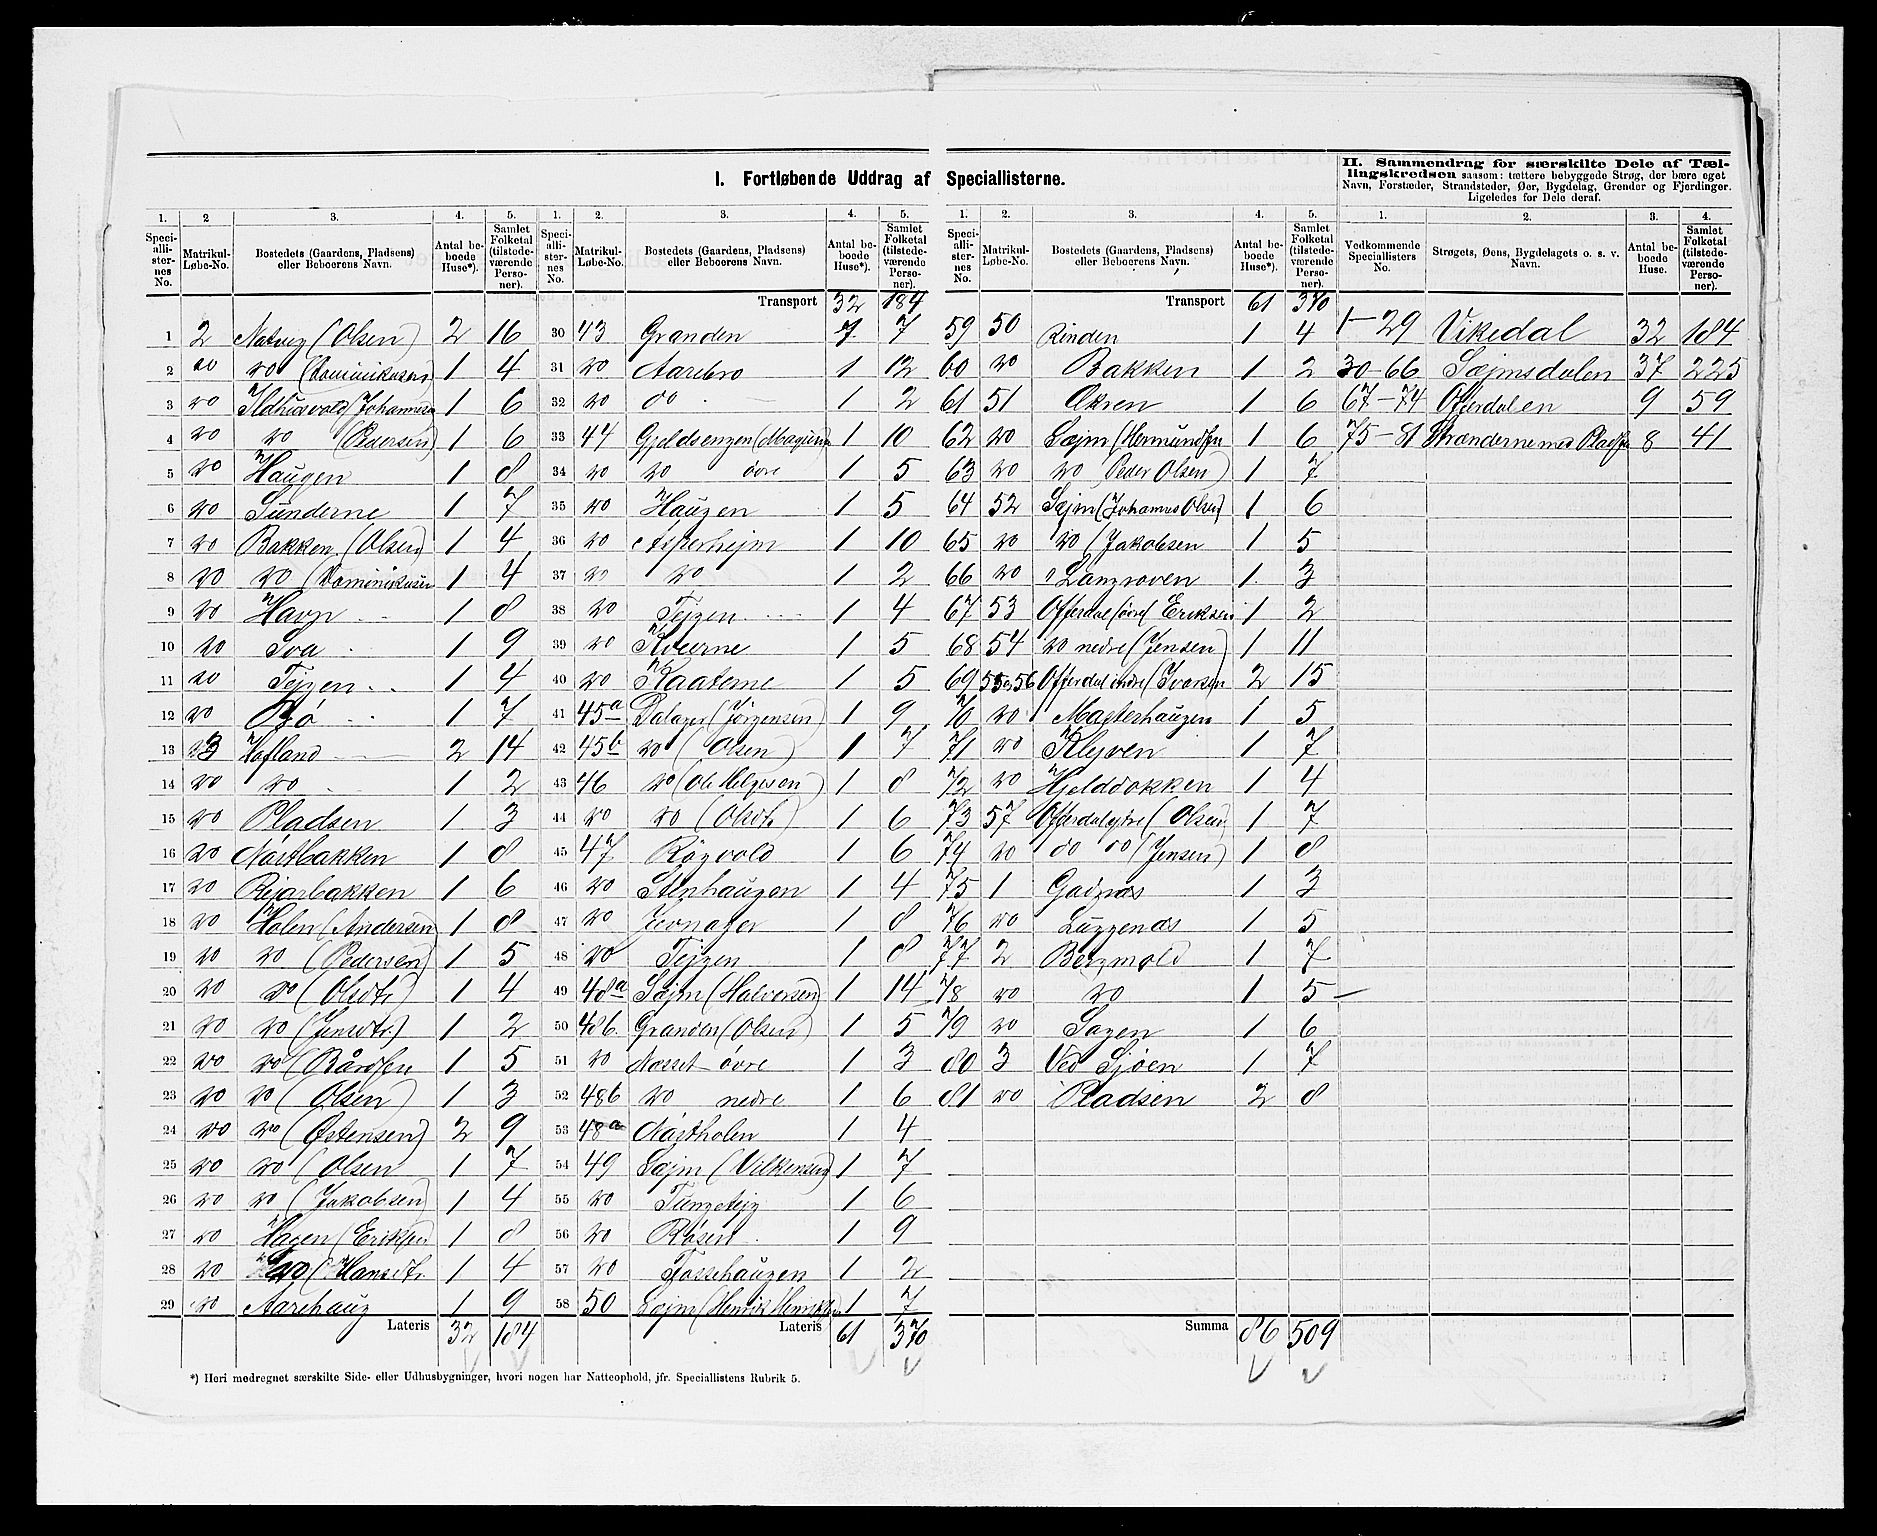 I. Fortløbende Uddrag af Speciallisterne.
II. Sammendrag for særskilte Dele af Tællingskredsen saasom: tættere bebyggede Strøg, der bære eget Navn, Forstæder, Strandsteder, Øer, Bygdelag, Grender og Fjerdinger. Ligeledes for Dele deraf.
1. 2 3. 4. 5. 1. 2. 3. 4. 5. 1. 2. 3. 4. 5. 1. 2. 3. 4.
Speciallisternes No. Matrikul-Løbe-No. Bostedets (Gaardens, Pladsens) eller Beboerens Navn. Antal beboede Huse*). Samlet Folketal (tilstedeværende Personer).
Speciallisternes No. Matrikul-Løbe-No. Bostedets (Gaardens, Pladsens) eller Beboerens Navn. Antal beboede Huse*). Samlet Folketal (tilstedeværende Personer).
Speciallisternes No. Matrikul-Løbe-No. Bostedets (Gaardens, Pladsens) eller Beboerens Navn. Antal beboede Huse*). Samlet Folketal (tilstedeværende Personer).
Vedkommende Speciallisters No. Strøgets, Øens, Bygdelagets o. s. v. Navn. Antal beboede Huse. Samlet Folketal (tilstedeværende Personer).
1 2 Natvig (Olsen) 2 16
2 do do (Dominikusen) 1 4
3 do Ildhusvold (Johannesen 1 6
4 do do (Pedersen) 1 6
5 do Haugen 1 8
6 do Sunderne 1 7
7 do Bakken (Olsen) 1 4
8 do do (Dominikusen 1 4
9 do Havn 1 8
10 do Sva 1 9
11 do Tejgen 1 4
12 do Bø 1 7
13 3 Hofland 2 14
14 do do 1 2
15 do Pladsen 1 3
16 do Nøstbakken 1 8
17 do Rejarbakken 1 6
18 do Holen (Andersen) 1 8
19 do do (Pedersen) 1 5
20 do do (Olsdtr) 1 4
21 do do (Jensdtr.) 1 2
22 do do (Bårdsen 1 5
23 do do (Olsen) 1 3
24 do do (Østensen) 2 9
25 do do (Olsen 1 7
26 do do (Jakobsen) 1 4
27 do Hagen (Eriksen 1 8
28 do do (Hansdtr. 1 4
29 do Aarehaug 1 9
Lateris 32 184
Transport 32 184
30 43 Granden 1 7
31 do Aarebro 1 12
32 do do 1 2
33 44 Gjeldsengen (Magnus) 1 10
34 do do övre 1 5
35 do Haugen 1 5
36 do Asperhejm 1 10
37 do do 1 2
38 do Tejgen 1 4
39 do Kverne 1 5
40 do Kaaterne 1 5
41 45a Dalager (Jörgensen) 1 9
42 45b do (Olsen) 1 7
43 46 do (Ole Helgesen) 1 8
44 do do (Olsdtr) 1 6
45 47 Røgvold 1 6
46 do Stenhaugen 1 4
47 do Jevnager 1 8
48 do Tejgen 1 8
49 48a Søjm (Halvorsen) 1 14
50 48b. Granden (Olsen) 1 5
51 do Nosset övre 1 3
52 48b do nedre 1 6
53 48a Nøstholen 1 4
54 49 Søjm (Vilkensen) 1 7
55 do Tungetejg 1 6
56 do Røsen 1 9
57 do Fossehaugen 1 2
58 50 Søjm (Henrik Henriksen 1 7
Lateris 61 370
Transport 61 370
59 50 Rinden 1 4
60 do Bakken 1 2
61 51 Økren 1 6
62 do Søjm (Hermundsen 1 6
63 do do Peder Olsen) 1 7
64 52 Søjm (Johannes Olsen) 1 6
65 do do (Jakobsen 1 5
66 do Langroven 1 3
67 53 Offerdal övre (Eriksen 1 2
68 54 do nedre (Jensen) 1 11
69 55 og 56 Offerdal indre (Ivarsen 2 15
70 do Masterhaugen 1 5
71 do Klejven 1 7
72 do Hjelddokken 1 4
73 57 Offerdal ytre (Olsen) 1 7
74 do do do (Jensen) 1 8
75 1 Gadnæs 1 3
76 do Luggenæs 1 5
77 2 Bergmold 1 7
78 do do 1 5
79 do Sagen 1 6
80 3 Ved Sjøen 1 7
81 do Pladsen 2 8
Summa 86 509
1-29 Vikedal 32 184
30-66 Søjmsdalen 37 225
67-74 Offerdalen 9 59
75-81 Strenderne med Pladsen 8 41
*) Heri medregnet særskilte Side- eller Udhusbygninger, hvori nogen har Natteophold, jfr. Speciallistens Rubrik 5.